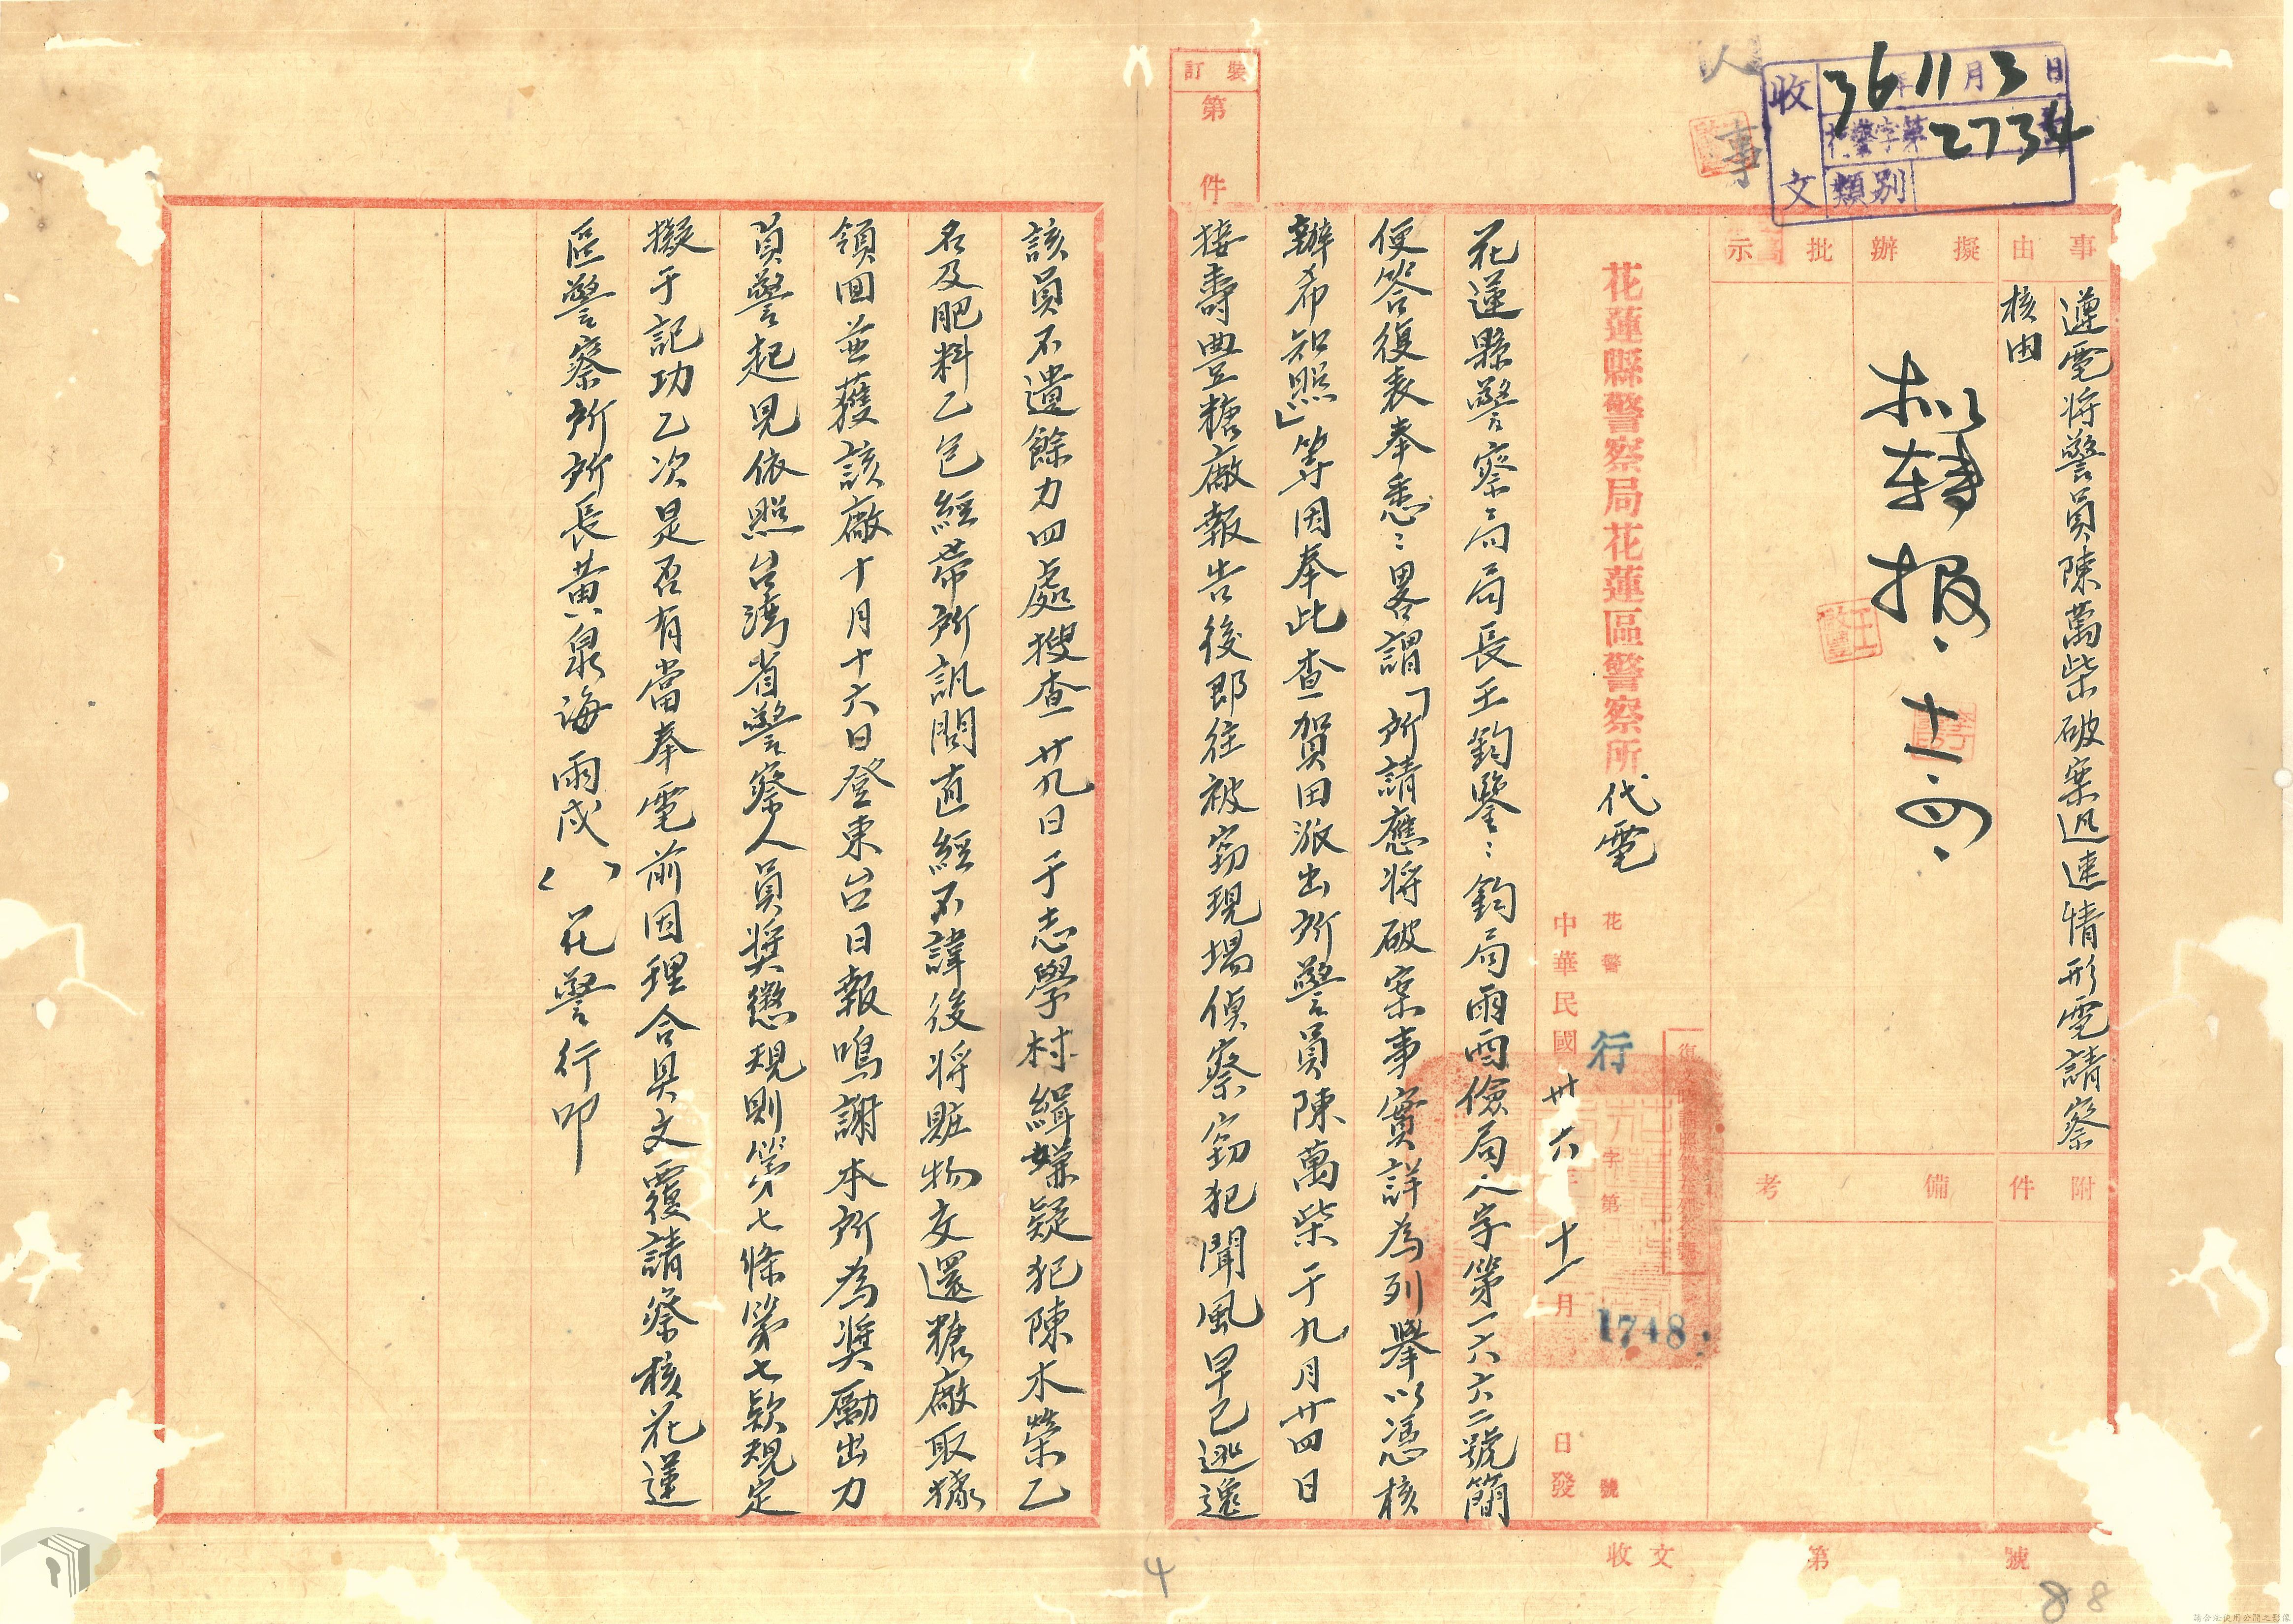 收文
36年11月3日
花警字第2734號
類別
人事
裝訂
第 件
事由
遵電將警員陳萬柴破案迅速情形電請察
核由
擬辦
批示
拟转报、十一、四、
附件
備考
花蓮縣警察局花蓮區警察所代電
花警 行 字第 1748 號
中華民國卅六年十一月 日發
花蓮縣警察局局長王鈞鑒：鈞局雨酉儉局人字第一六六二號簡
便答復表奉悉：畧謂「所請應將破案事實詳為列舉以憑核
辦希知照」等因奉此查賀田派出所警員陳萬柴于九月廿四日
接壽豊糖廠報告後即往被竊現場偵察竊犯聞風早已逃遁
該員不遺餘力四處搜查廿九日于志學村緝嫌疑犯陳木榮乙
名及肥料乙包經帶所訊問直經不諱後將賍物交還糖廠取據
領回並獲該廠十月十六日登東台日報鳴謝本所為獎勵出力
員警起見依照台湾省警察人員獎懲規則第七條第七款規定
擬于記功乙次是否有當奉電前因理合具文覆請察核花蓮
區警察所所長黃泉海雨戌（ ）花警行叩
收文 第 號
4
88
請合法使用公開之影像